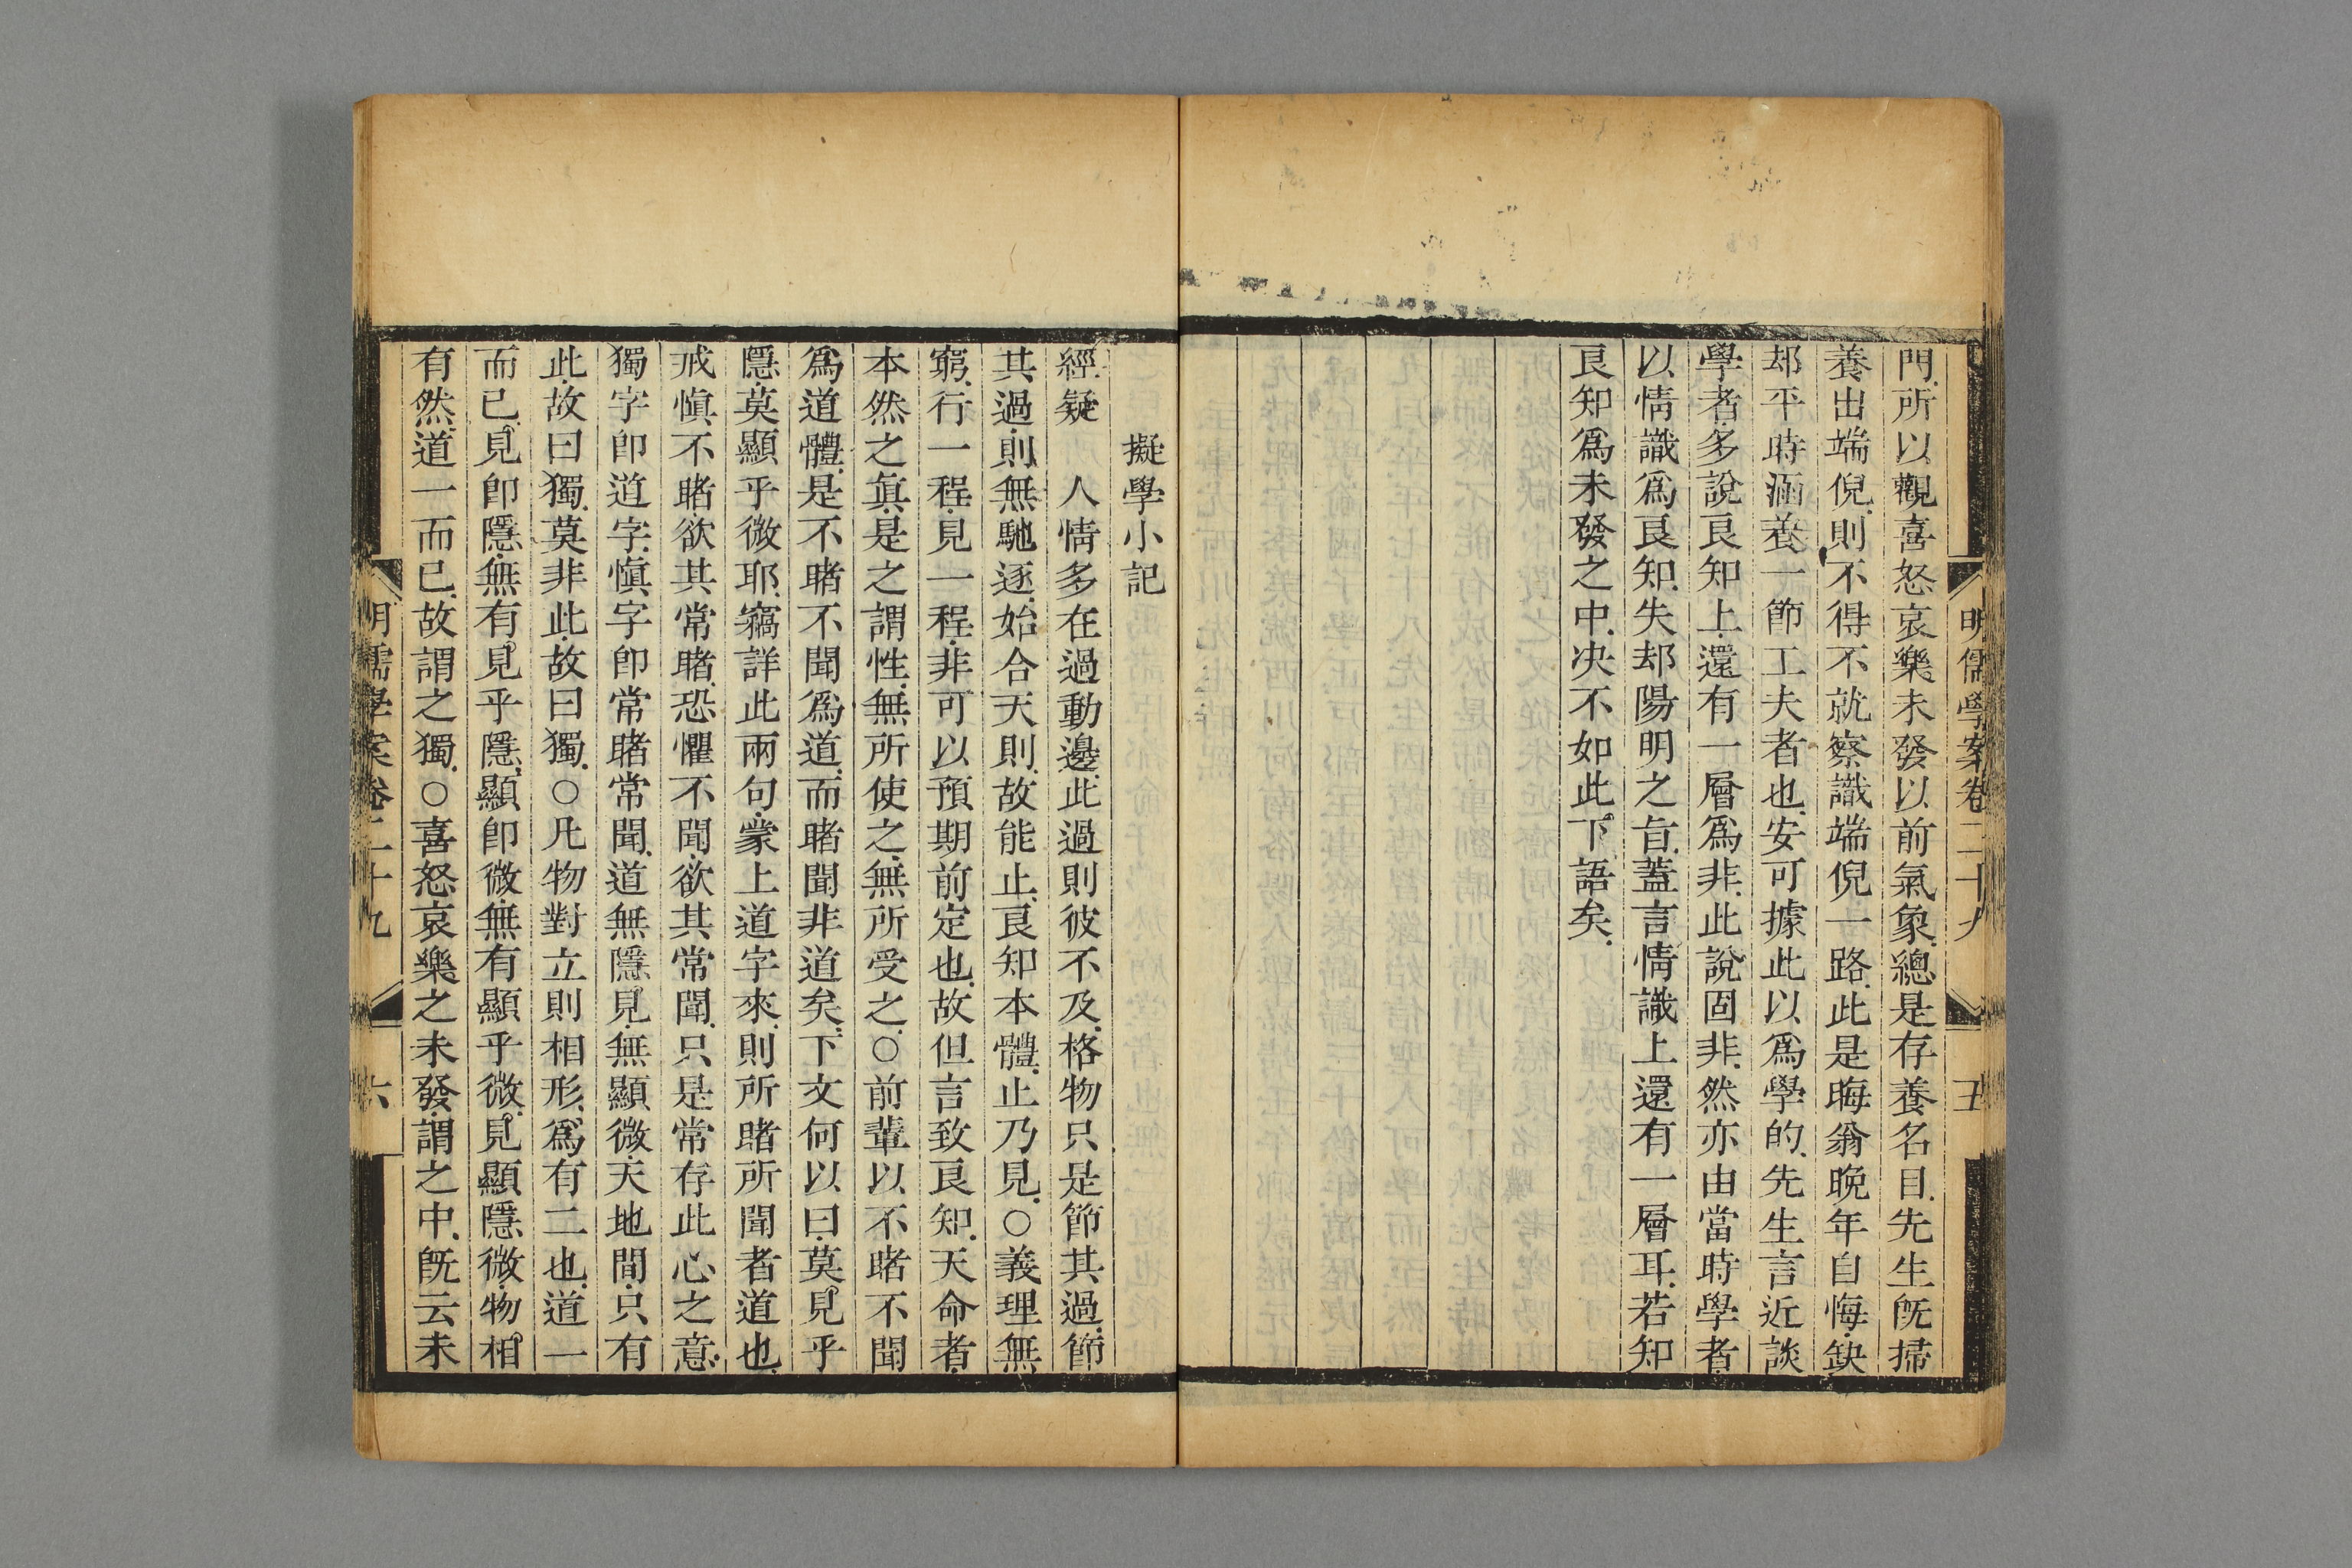 明儒學案卷二十九
五
門所以觀喜怒哀樂未發以前氣象總是存養名目先生旣掃
養出端倪則不得不就察識端倪一路此是晦翁晚年自悔缺
却平時涵養一節工夫者也安可據此以爲學的先生言近談
學者多說良知上還有一層爲非此說固非然亦由當時學者
以情識爲良知失却陽明之旨蓋言情識上還有一層耳若知
良知爲未發之中決不如此下語矣
擬學小記
經疑　人情多在過動邊此過則彼不及格物只是節其過節
其過則無馳逐始合天則故能止良知本體止乃見○義理無
窮行一程見一程非可以預期前定也故但言致良知天命者
本然之眞是之謂性無所使之無所受之○前輩以不睹不聞
爲道體是不睹不聞爲道而睹聞非道矣下文何以曰莫見乎
隱莫顯乎微耶竊詳此兩句蒙上道字來則所睹所聞者道也
戒愼不睹欲其常睹恐懼不聞欲其常聞只是常存此心之意
獨字卽道字愼字卽常睹常聞道無隱見無顯微天地間只有
此故曰獨莫非此故曰獨○凡物對立則相形爲有二也道一
而已見卽隱無有見乎隱顯卽微無有顯乎微見顯隱微物相
有然道一而已故謂之獨○喜怒哀樂之未發謂之中旣云未
明儒學案卷二十九
六